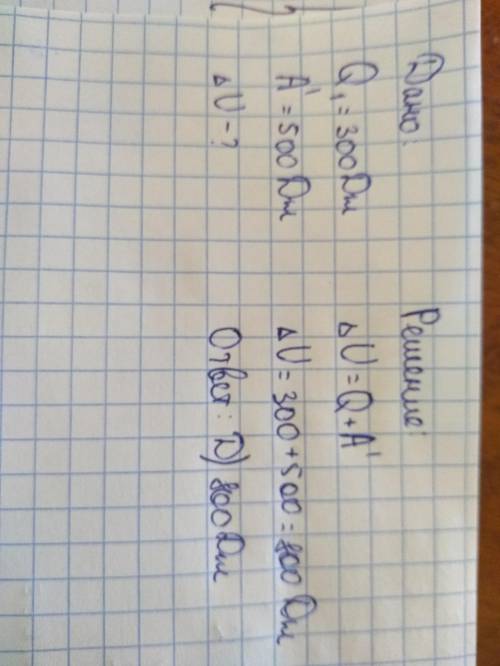 Дано:
Q₁ = 300 Дж
A' = 500 Дж
ΔU - ?
Решение:
ΔU = Q + A'
ΔU = 300 + 500 = 800 Дж
Ответ: D) 800 Дж